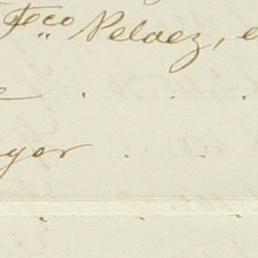 Fco Pelaez, e
e . . .
yor . .